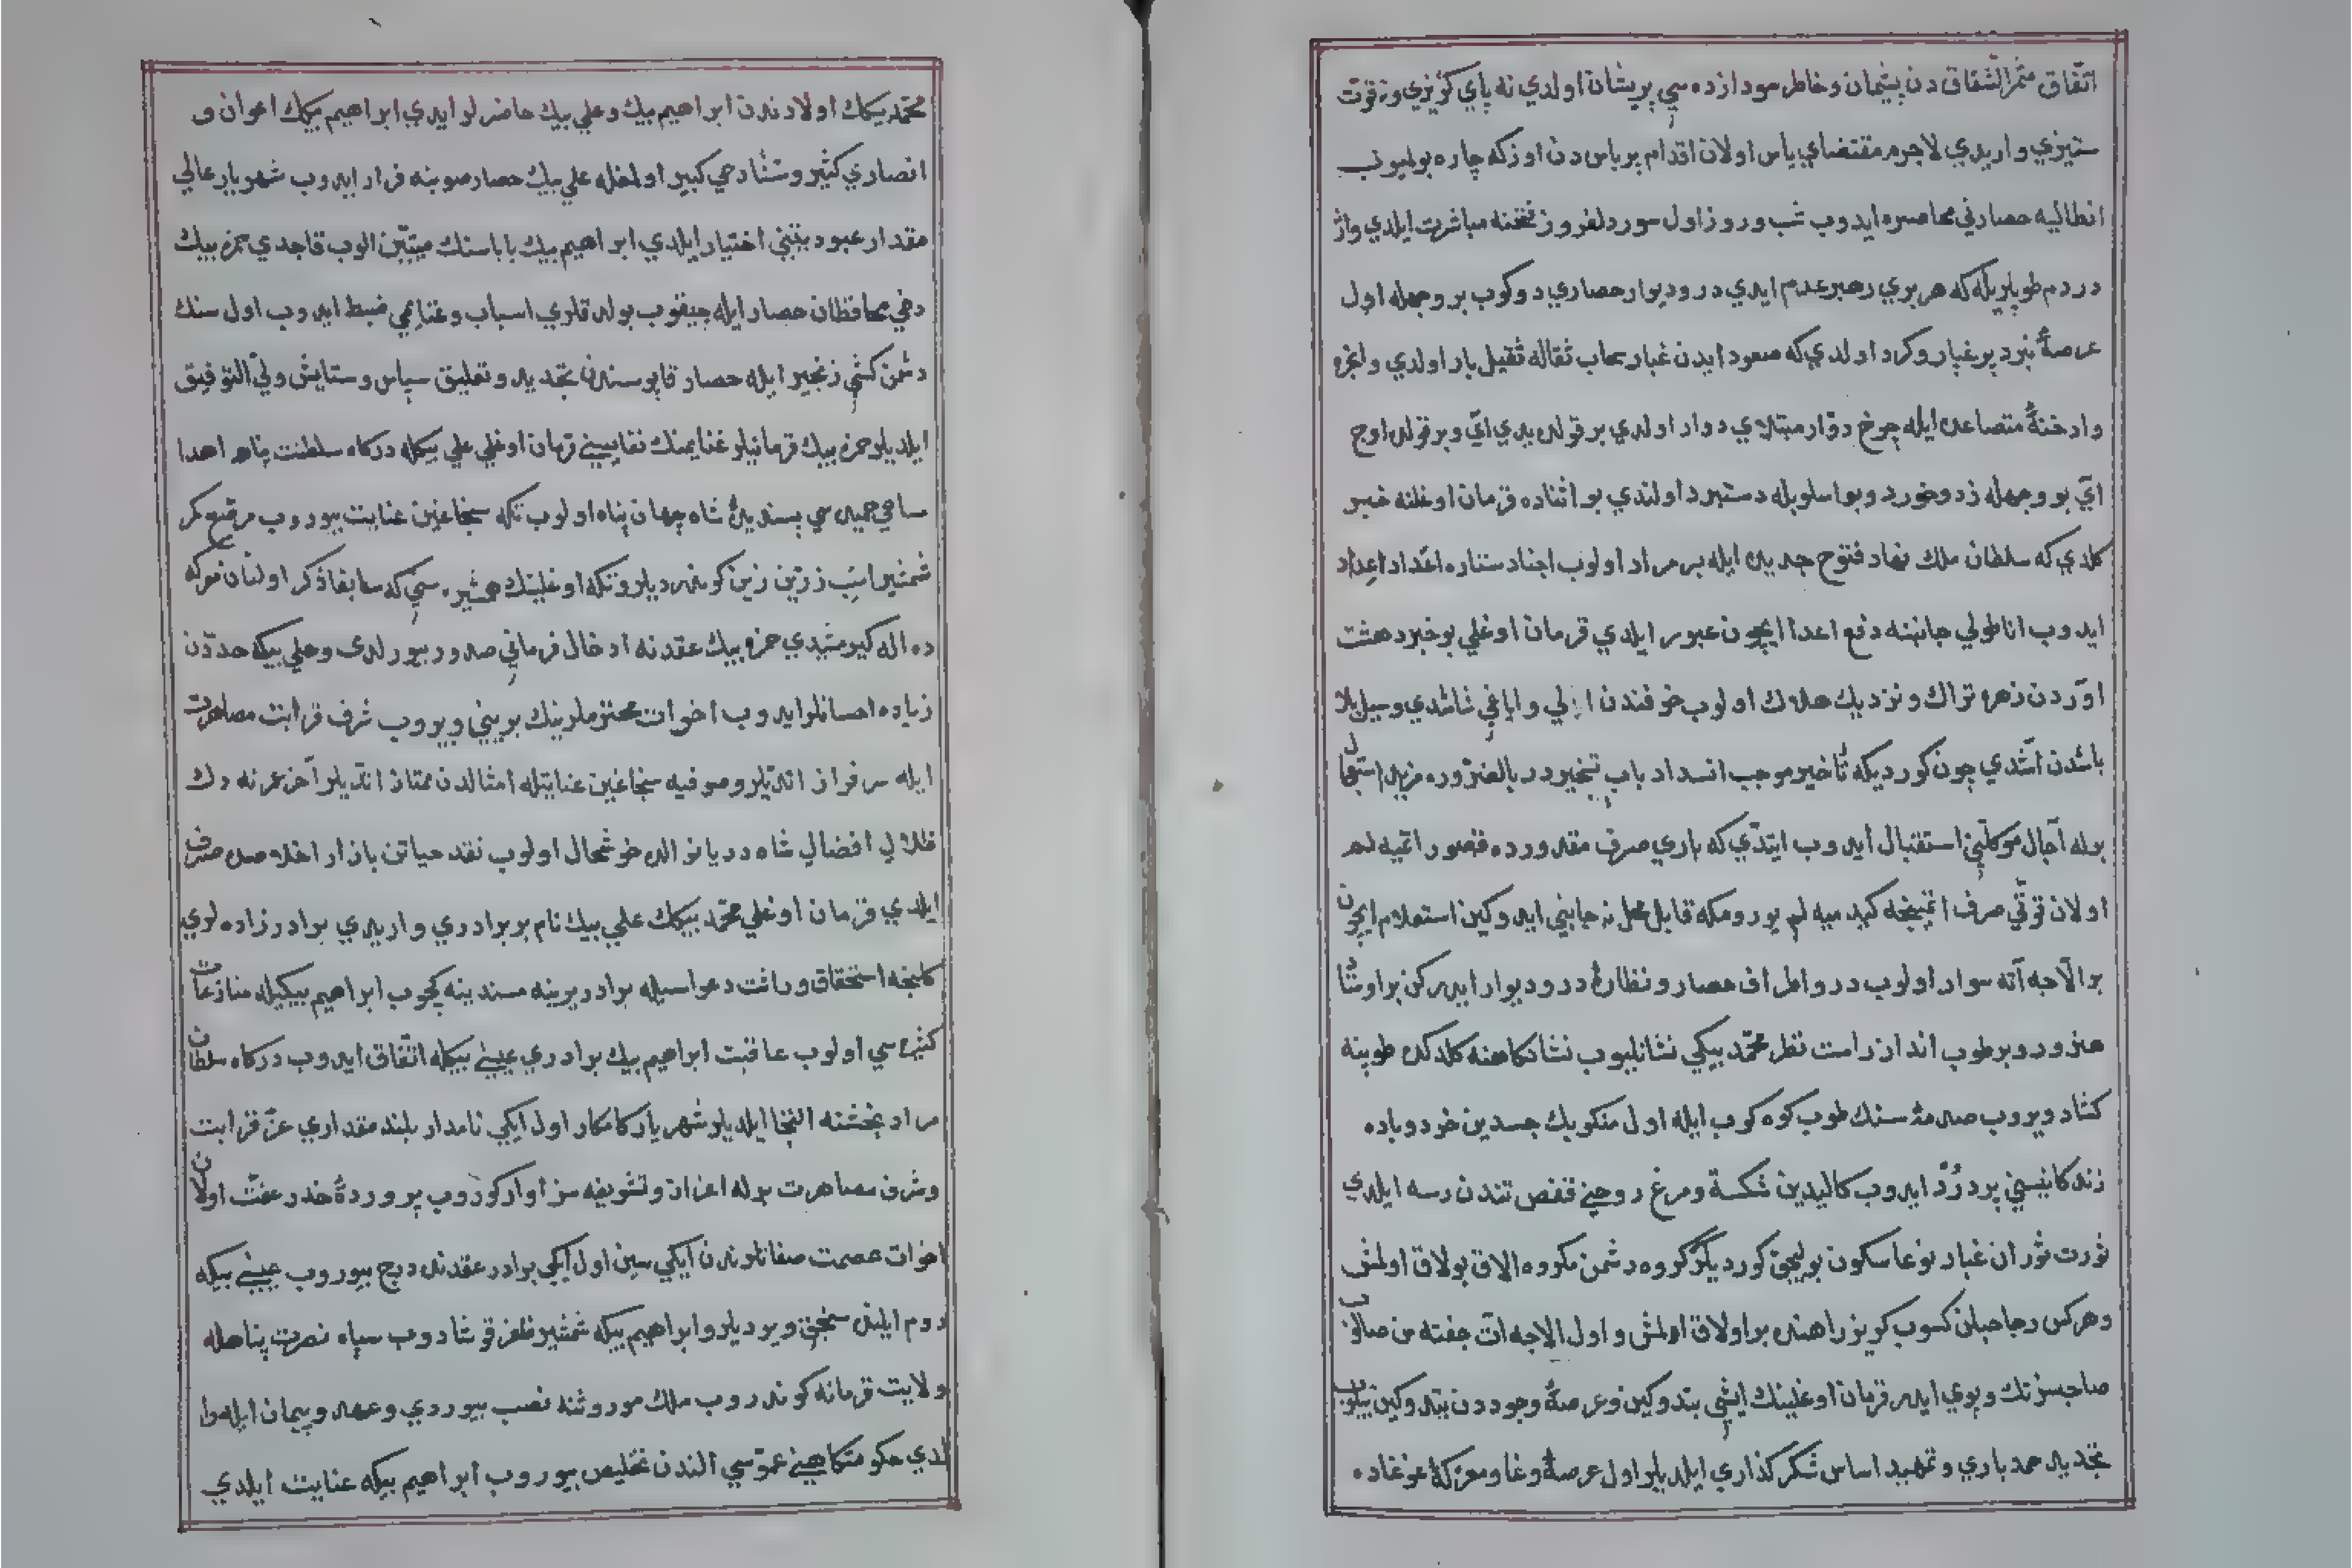 اتّفاق مثمر الشّقاق دن پشیمان و خاطر سودازده سي پریشان اولدي نه پاي کریزي و نه قوت
ستیزي واریدي لاجرم مقتضاي یاس اولان اقدام پر باس دن اوزکه چاره بولمیوب
انطالیه حصارني محاصره ایدوب شب و روز اول سور دلفروز فتحنه مباشرت ایلدي واژ
در دم طوپلریله که هر بري رهبر عدم ایدي در و دیوار حصاري دوکوب بر وجهله اول
عرصهٔ نبرد پر غبار و کرد اولدي که صعود ایدن غبار سحاب ثقاله ثقیل بار اولدي و ابخره
وادخنهٔ متصاعده ایله چرخ دوّار مبتلاي دوار اولدي بر قولده یدي آي و بر قولده اوچ
آي بو وجهله زد و خورد و بو اسلوبله دستبرد اولندي بو اثناده قرمان اوغلنه خبر
کلدي که سلطان ملك نهاد فتوح جدیده ایله بر مراد اولوب اجناد ستاره اعداد اعداد
ایدوب اناطولي جانبنه دفع اعدا ایچون عبور ایلدي قرمان اوغلي بو خبر دهشت
اوردن زهره تراك و نزدیك هلاك اولوب خوفندن الي و ایاغي شاشدي و سیل بلا
باشدن آشدي چون کوردیکه تأخیر موجب انسداد باب تسخیر در بالضّروره مزید استعجال
برله آجال موکلني استقبال ایدوب ایتدي که باري صرف مقدورده قصور اتمیه لم
اولان قوّتي صرف اتمینجه کیدمیه لم یورومکه قابل محل نه جانبي ایدوکین استعلام ایچون
بر آلاجه آته سوار اولوب دور و اطراف حصار و نظارهٔ در و دیوار ایدرکن بر اوستا
هنرور و بر طوپ انداز راست نظر محمّد بیکي نشانلیوب نشانکاهنه کلدکده طوپنه
کشاد ویروب صدمهٔ سنك طوپ کوه کوب ایله اول منکوبك جسدین خرد و باده
زندکانیسني پر درد ایدوب کالبدین شکسته و مرغ روحني قفص تندن رسته ایلدي
ثورت ثوران غبار غوغا سکون بولیجق کوردیلرکه کروه دشمن مکروه الاق بولاق اولمش
و هرکس رجا حبلن کسوب کریز راهنده بر اولاق اولمش و اول آلاجه آت جفته سن صالوب
صاحبسز تك و پوي ایدر قرمان اوغلینك ایشي بتدوکین و عرصهٔ وجوددن یتدوکین بیلوب
تجدید حمد باري و تمهید اساس شکرکذاري ایلدیلر اول عرصهٔ وغا و معرکهٔ غوغاده
محمّد بیکك اولادندن ابراهیم بیك و علي بیك حاضرلر ایدي ابراهیم بیکك اعوان و
انصاري کثیر و سنّا دخي کبیر اولمغله علي بیك حصار صوبنه فرار ایدوب شهریار عالي
مقدار عبودیتني اختیار ایلدي ابراهیم بیك باباسنك میّتین الوب قاچدي حمزه بیك
دخي محافظان حصار ایله چیقوب بولدقلري اسباب و غنایمي ضبط ایدوب اول سنك
دشمن کشي زنجیر ایله حصار قاپوسندن تجدید و تعلیق سپاس و ستایش وليّ التوفیق
ایلدیلر حمزه بیك قرمانیلو غنایمنك نفایسیني قرمان اوغلي علي بیکله درکاه سلطنت پناهه اهدا
ساعي جمیله سي پسندیدهٔ شاه جهان پناه اولوب تکه سنجاغین عنایت بیوروب مرصّع کمر
شمشیر اسب زرّین زین کوندردیلر و تکه اوغلینك همشیره سي که سابقا ذکر اولنان معرکه
ده اله کیرمشیدي حمزه بیك عقدنه ادخال فرماني صدور بیورلدي و علي بیکه حددن
زیاده احسانلر ایدوب اخوات محترمه لرینك بریني ویروب شرف قرابت مصاهرت
ایله سرفراز اتدیلر و صوفیه سنجاغین عنایتله امثالدن ممتاز اتدیلر آخر عمرنه دك
ظلال افضال شاه دریا نوالده خوشحال اولوب نقد حیاتن بازار اخلاصده صرف
ایلدي قرمان اوغلي محمّد بیکك علي بیك نام بر برادري واریدي برادرزاده لري
کلینجه استحقاق وراثت دعواسیله برادر یرینه مسندینه کچوب ابراهیم بیکیله منازعات
کثیره سي اولوب عاقبت ابراهیم بیك برادري عیسي بیکله اتّفاق ایدوب درکاه سلطان
مراد بخشنه التجا ایلدیلر شهریار کامکار اول ایکي نامدار بلند مقداري عزّ قرابت
و شرف مصاهرت برله اعزاز و تشریفه سزاوار کوروب پروردهٔ خدر عفّت اولان
اخوات عصمت صفاتلرندن ایکي سین اول ایکي برادر عقدنده درج بیوروب عیسي بیکه
روم ایلنده سنجق ویردیلر و ابراهیم بیکه شمشیر ظفر قوشادوب سپاه نصرت پناهله
ولایت قرمانه کوندروب ملك موروثنه نصب بیوردي و عهد و پیمان ایله موا
لدي حکومتکاهني عموسي الندن تخلیص بیوروب ابراهیم بیکه عنایت ایلدي